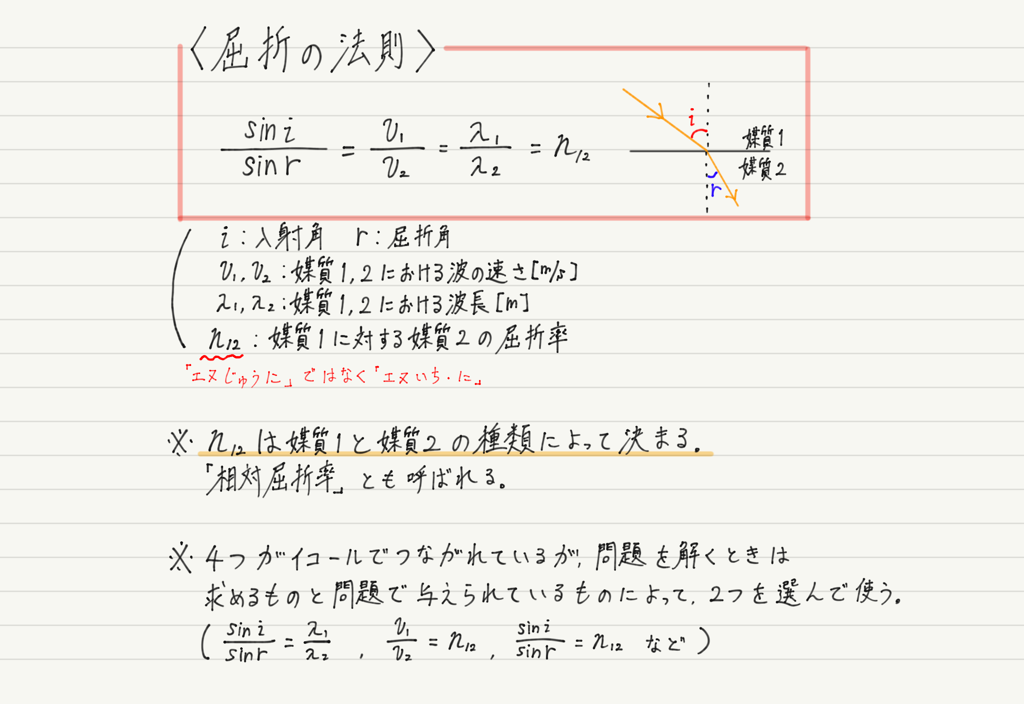 〈屈折の法則〉
sin i / sin r = v₁ / v₂ = λ₁ / λ₂ = n₁₂
i
媒質1
媒質2
r
i:入射角 r:屈折角
v₁, v₂:媒質1,2における波の速さ[m/s]
λ₁, λ₂:媒質1,2における波長[m]
n₁₂:媒質1に対する媒質2の屈折率
「エヌじゅうに」ではなく「エヌいち・に」
※ n₁₂は媒質1と媒質2の種類によって決まる.
「相対屈折率」とも呼ばれる。
※ 4つがイコールでつながれているが,問題を解くときは
求めるものと問題で与えられているものによって,2つを選んで使う。
(sin i / sin r = λ₁ / λ₂ , v₁ / v₂ = n₁₂ , sin i / sin r = n₁₂ など)